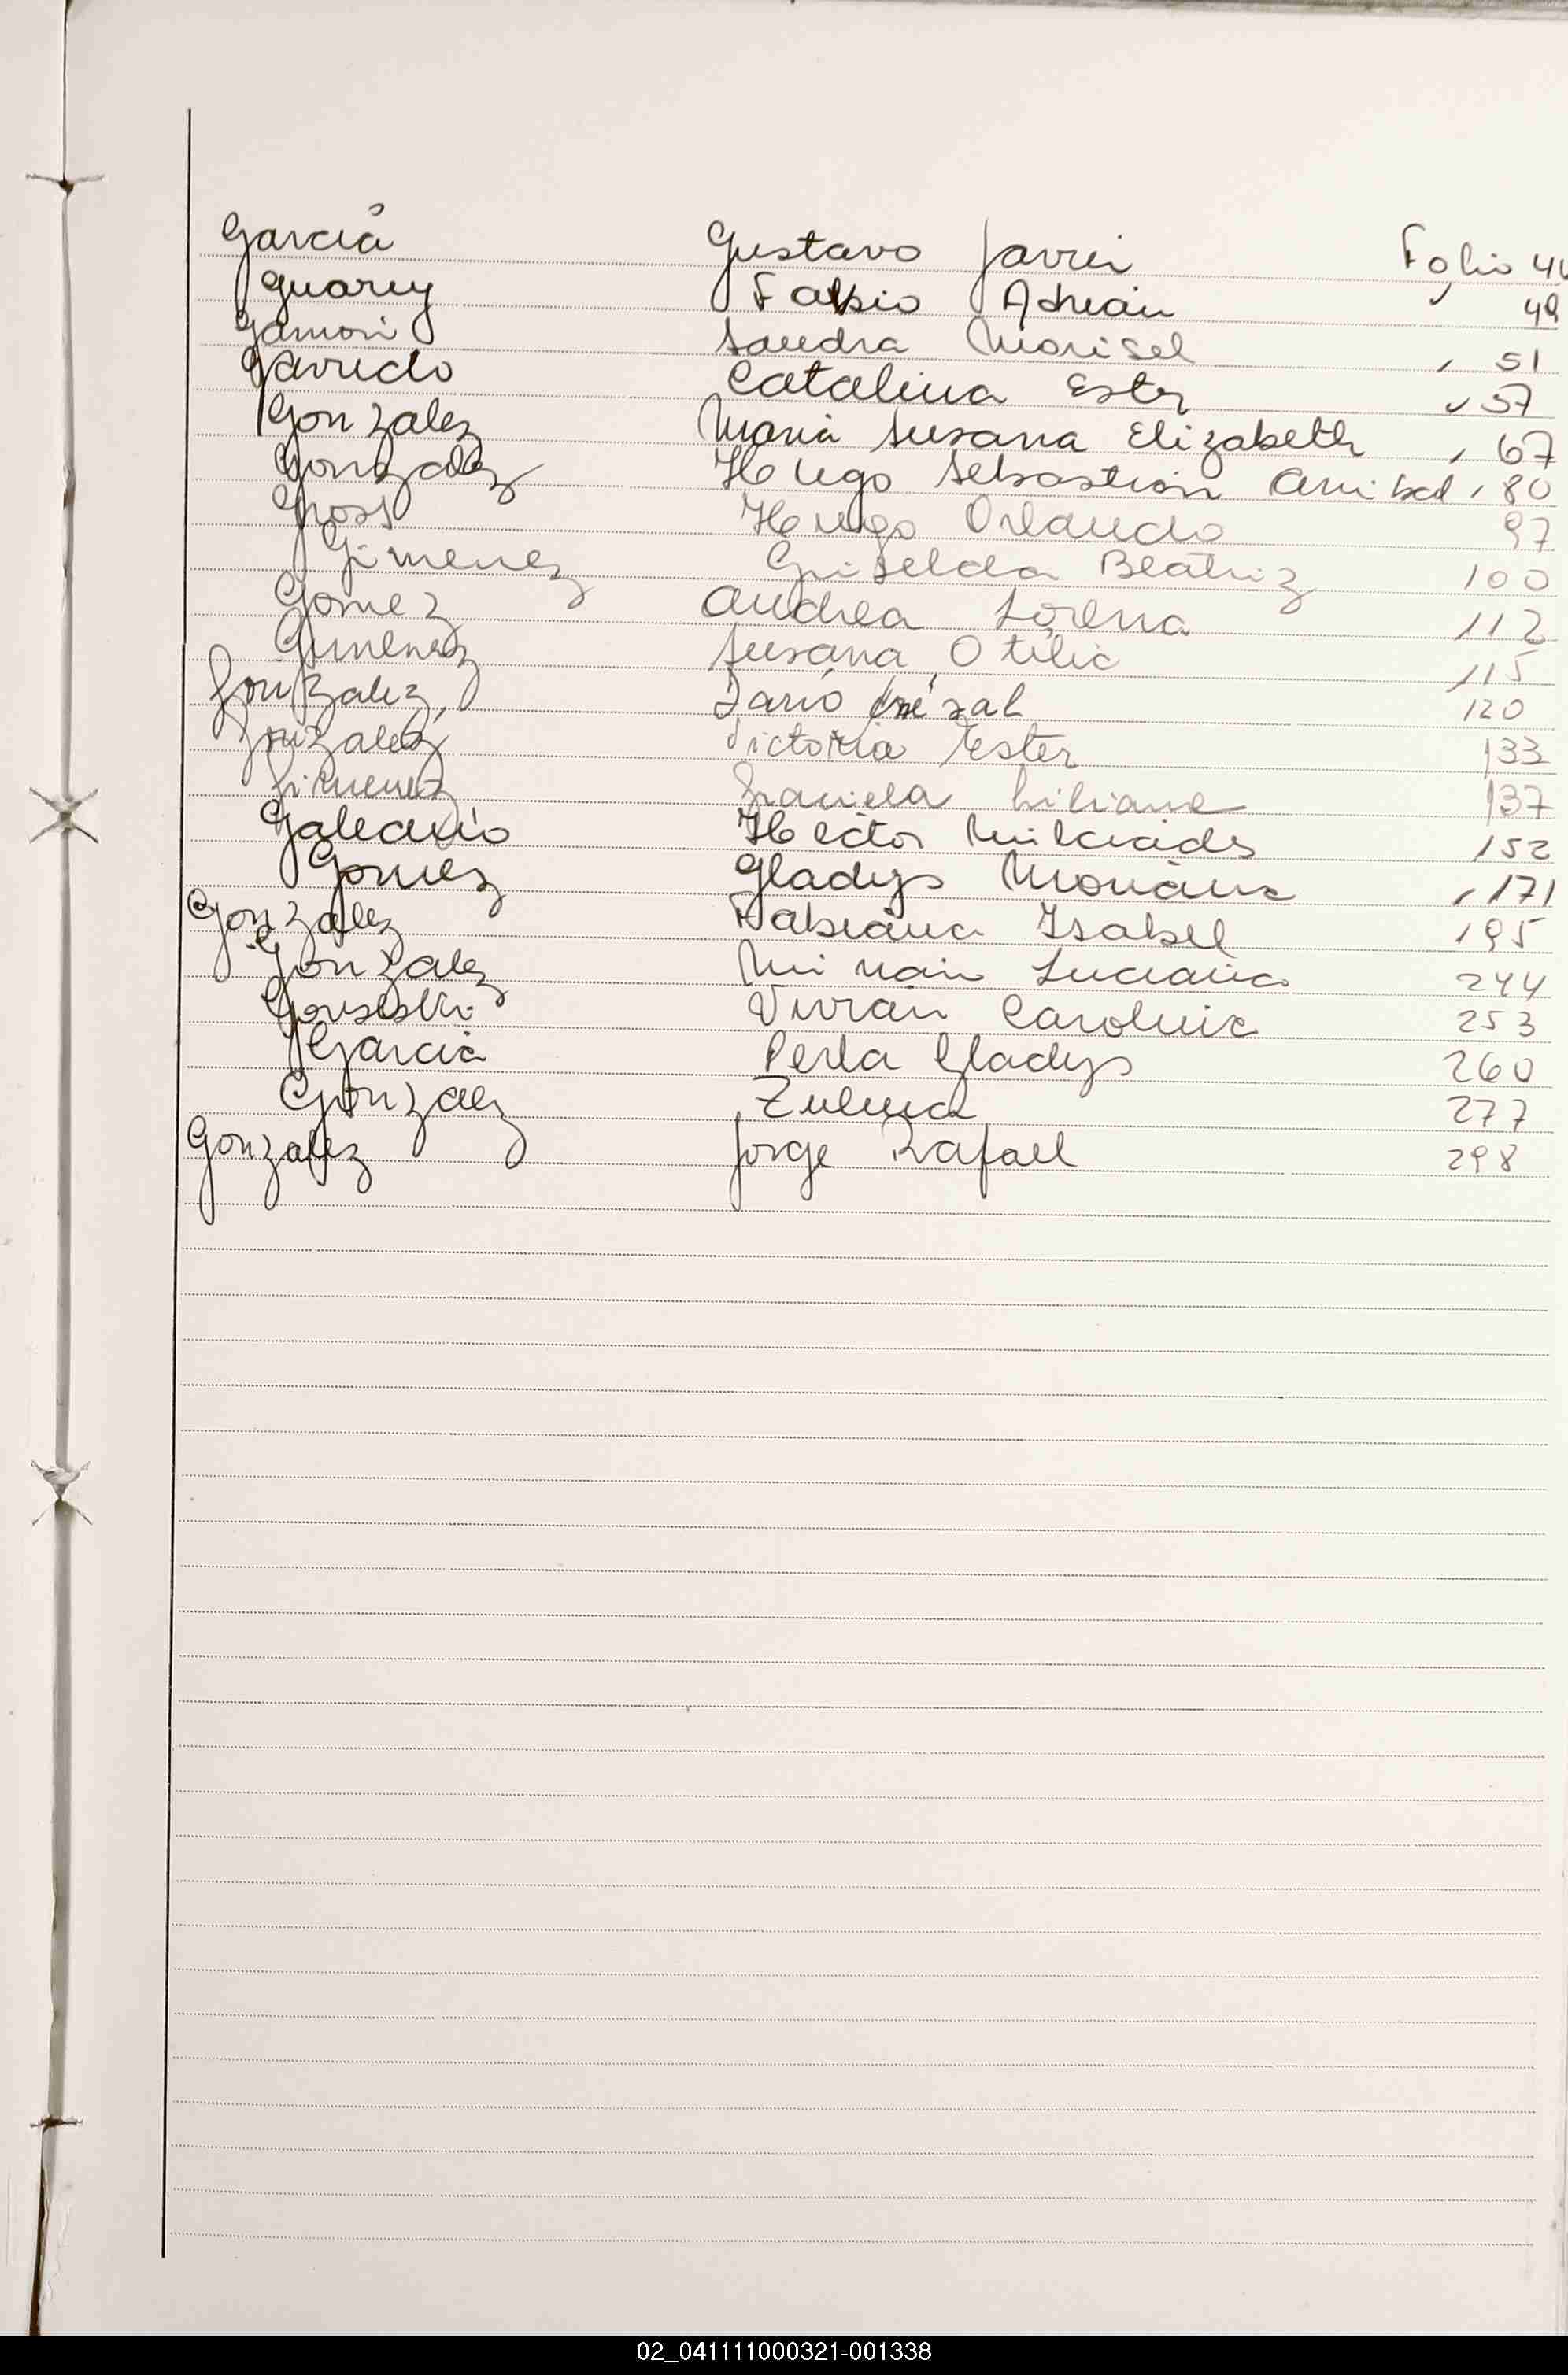 García Gustavo Javier Folio
Fabio Adrian 49
Sandra Marisel 51
Garrido Catalina Ester 57
Gonzalez Maria Susana Elizabeth 67
Gonzalez Hugo Sebastian Anibal 80
Gross Hugo Orlando 97
Gimenez Griselda Beatriz 100
Gomez Andrea Lorena 112
Gimenez Susana Otilia 115
Gonzalez Darío 120
Gonzalez Victoria Ester 133
Gimenez Graciela Liliana 137
Galeano Hector Milciades 152
Gomez Gladys Mariana 171
Gonzalez Fabiana Isabel 195
Gonzalez Mirian Luciana 244
Vivian Carolina 253
Garcia Perla Gladys 260
Gonzalez Zulema 277
Gonzalez Jorge Rafael 298
02_041111000321-001338